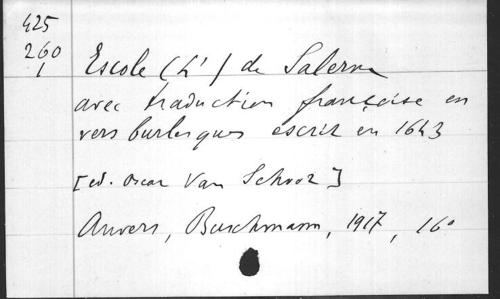 425
260
1
Escole (L') de Salerne
avec traduction française en
vers burlesques escrit en 1643
[ed. Oscar Van Schoor]
Anvers, Buschmann, 1917, 16°